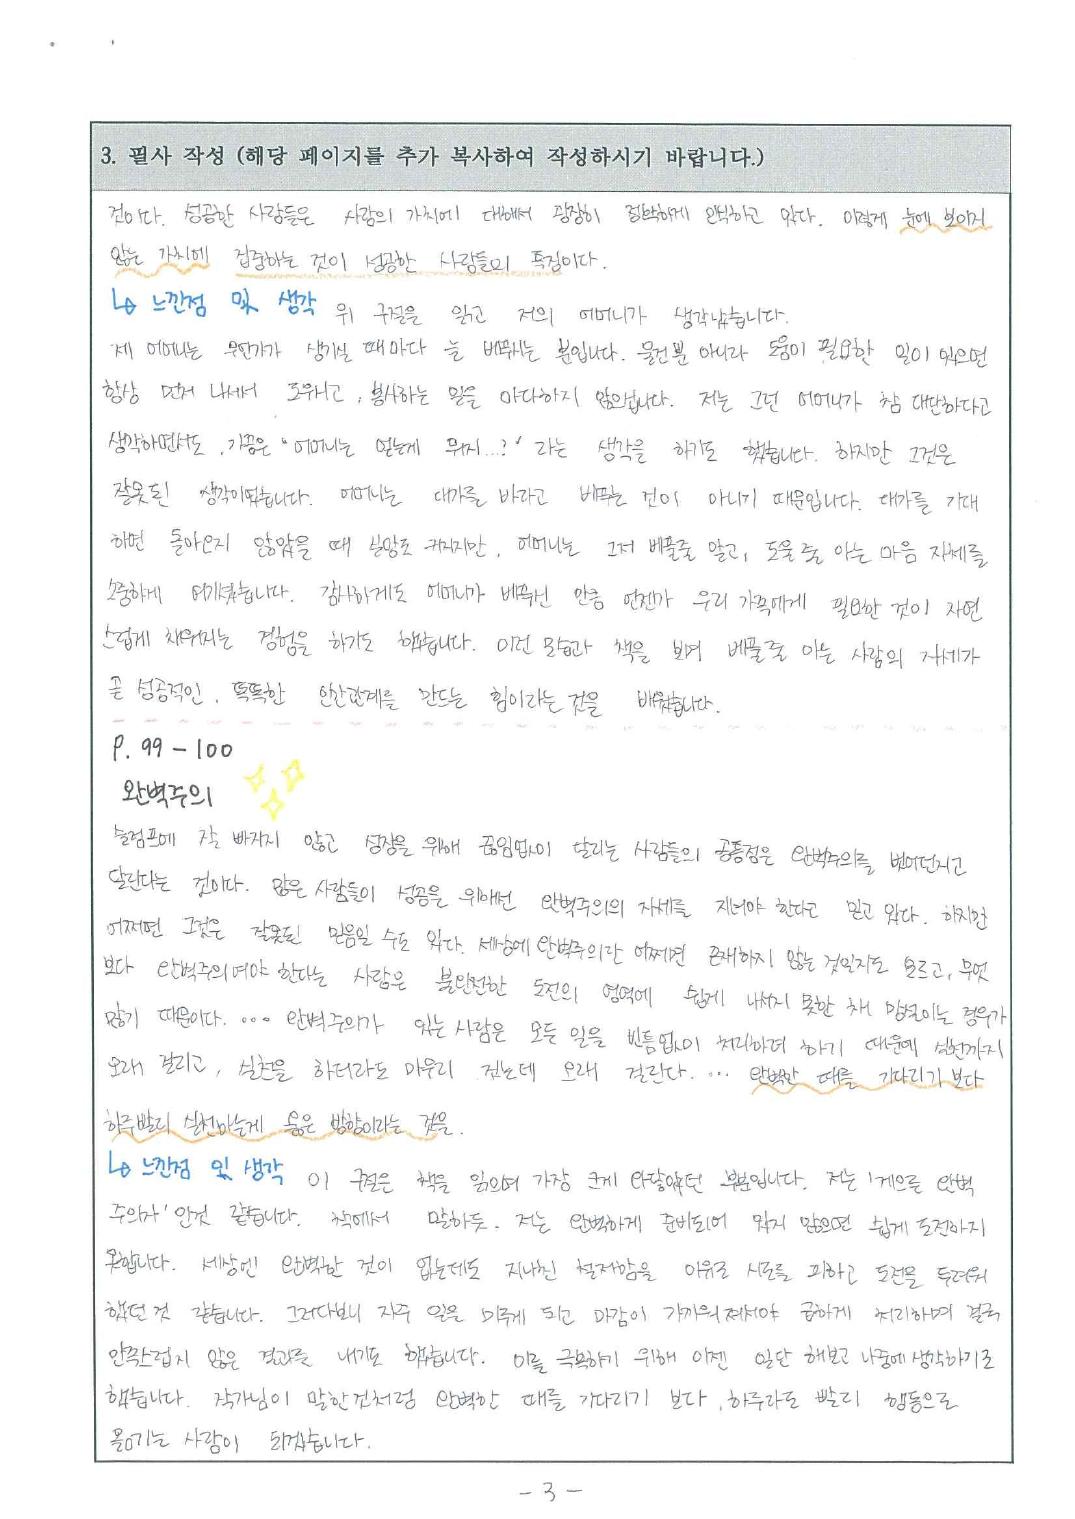 3. 필사 작성 (해당 페이지를 추가 복사하여 작성하시기 바랍니다.)
것이다. 성공한 사람들은 사람의 가치에 대해서 굉장히 절박하게 인식하고 있다. 이렇게 눈에 보이지
않는 가치에 집중하는 것이 성공한 사람들의 특징이다.
↳ 느낀점 및 생각 위 구절을 읽고 저의 어머니가 생각났습니다.
제 어머니는 무언가가 생기실 때마다 늘 베푸시는 분입니다. 물건뿐 아니라 도움이 필요한 일이 있으면
항상 먼저 나서서 도우시고, 봉사하는 일을 마다하지 않으십니다. 저는 그런 어머니가 참 대단하다고
생각하면서도, 가끔은 "어머니는 얻는게 뭐지...?" 라는 생각을 하기도 했습니다. 하지만 그것은
잘못된 생각이었습니다. 어머니는 대가를 바라고 베푸는 것이 아니기 때문입니다. 대가를 기대
하면 돌아오지 않았을 때 실망도 커지지만, 어머니는 그저 베풀줄 알고, 도울 줄 아는 마음 자체를
소중하게 여기셨습니다. 감사하게도 어머니가 베푸신 만큼 언젠가 우리 가족에게 필요한 것이 자연
스럽게 채워지는 경험을 하기도 했습니다. 이런 모습과 책을 보며 베풀줄 아는 사람의 자세가
곧 성공적인, 똑똑한 인간관계를 만드는 힘이라는 것을 배웠습니다.
P. 99 - 100
완벽주의
슬럼프에 잘 빠지지 않고 성장을 위해 끊임없이 달리는 사람들의 공통점은 완벽주의를 벗어던지고
달린다는 것이다. 많은 사람들이 성공을 위해선 완벽주의의 자세를 지녀야 한다고 믿고 있다. 하지만
어쩌면 그것은 잘못된 믿음일 수도 있다. 세상에 완벽주의란 어쩌면 존재하지 않는 것일지도 모르고, 무엇
보다 완벽주의여야 한다는 사람은 불완전한 도전의 영역에 쉽게 나서지 못한 채 망설이는 경우가
많기 때문이다. ... 완벽주의가 있는 사람은 모든 일을 빈틈없이 처리하려 하기 때문에 실천까지
오래 걸리고, 실천을 하더라도 마무리 짓는데 오래 걸린다. ... 완벽한 때를 기다리기 보다
하루빨리 실천하는게 옳은 방향이라는 것을.
↳ 느낀점 및 생각 이 구절은 책을 읽으며 가장 크게 와닿았던 부분입니다. 저는 '게으른 완벽
주의자' 인것 같습니다. 책에서 말하듯. 저는 완벽하게 준비되어 있지 않으면 쉽게 도전하지
못합니다. 세상엔 완벽한 것이 없는데도 지나친 철저함을 이유로 시도를 피하고 도전을 두려워
했던 것 같습니다. 그러다보니 자주 일을 미루게 되고 마감이 가까워져서야 급하게 처리하며 결국
만족스럽지 않은 결과를 내기도 했습니다. 이를 극복하기 위해 이젠 일단 해보고 나중에 생각하기로
했습니다. 작가님이 말한것처럼 완벽한 때를 기다리기 보다, 하루라도 빨리 행동으로
옮기는 사람이 되겠습니다.
- 3 -